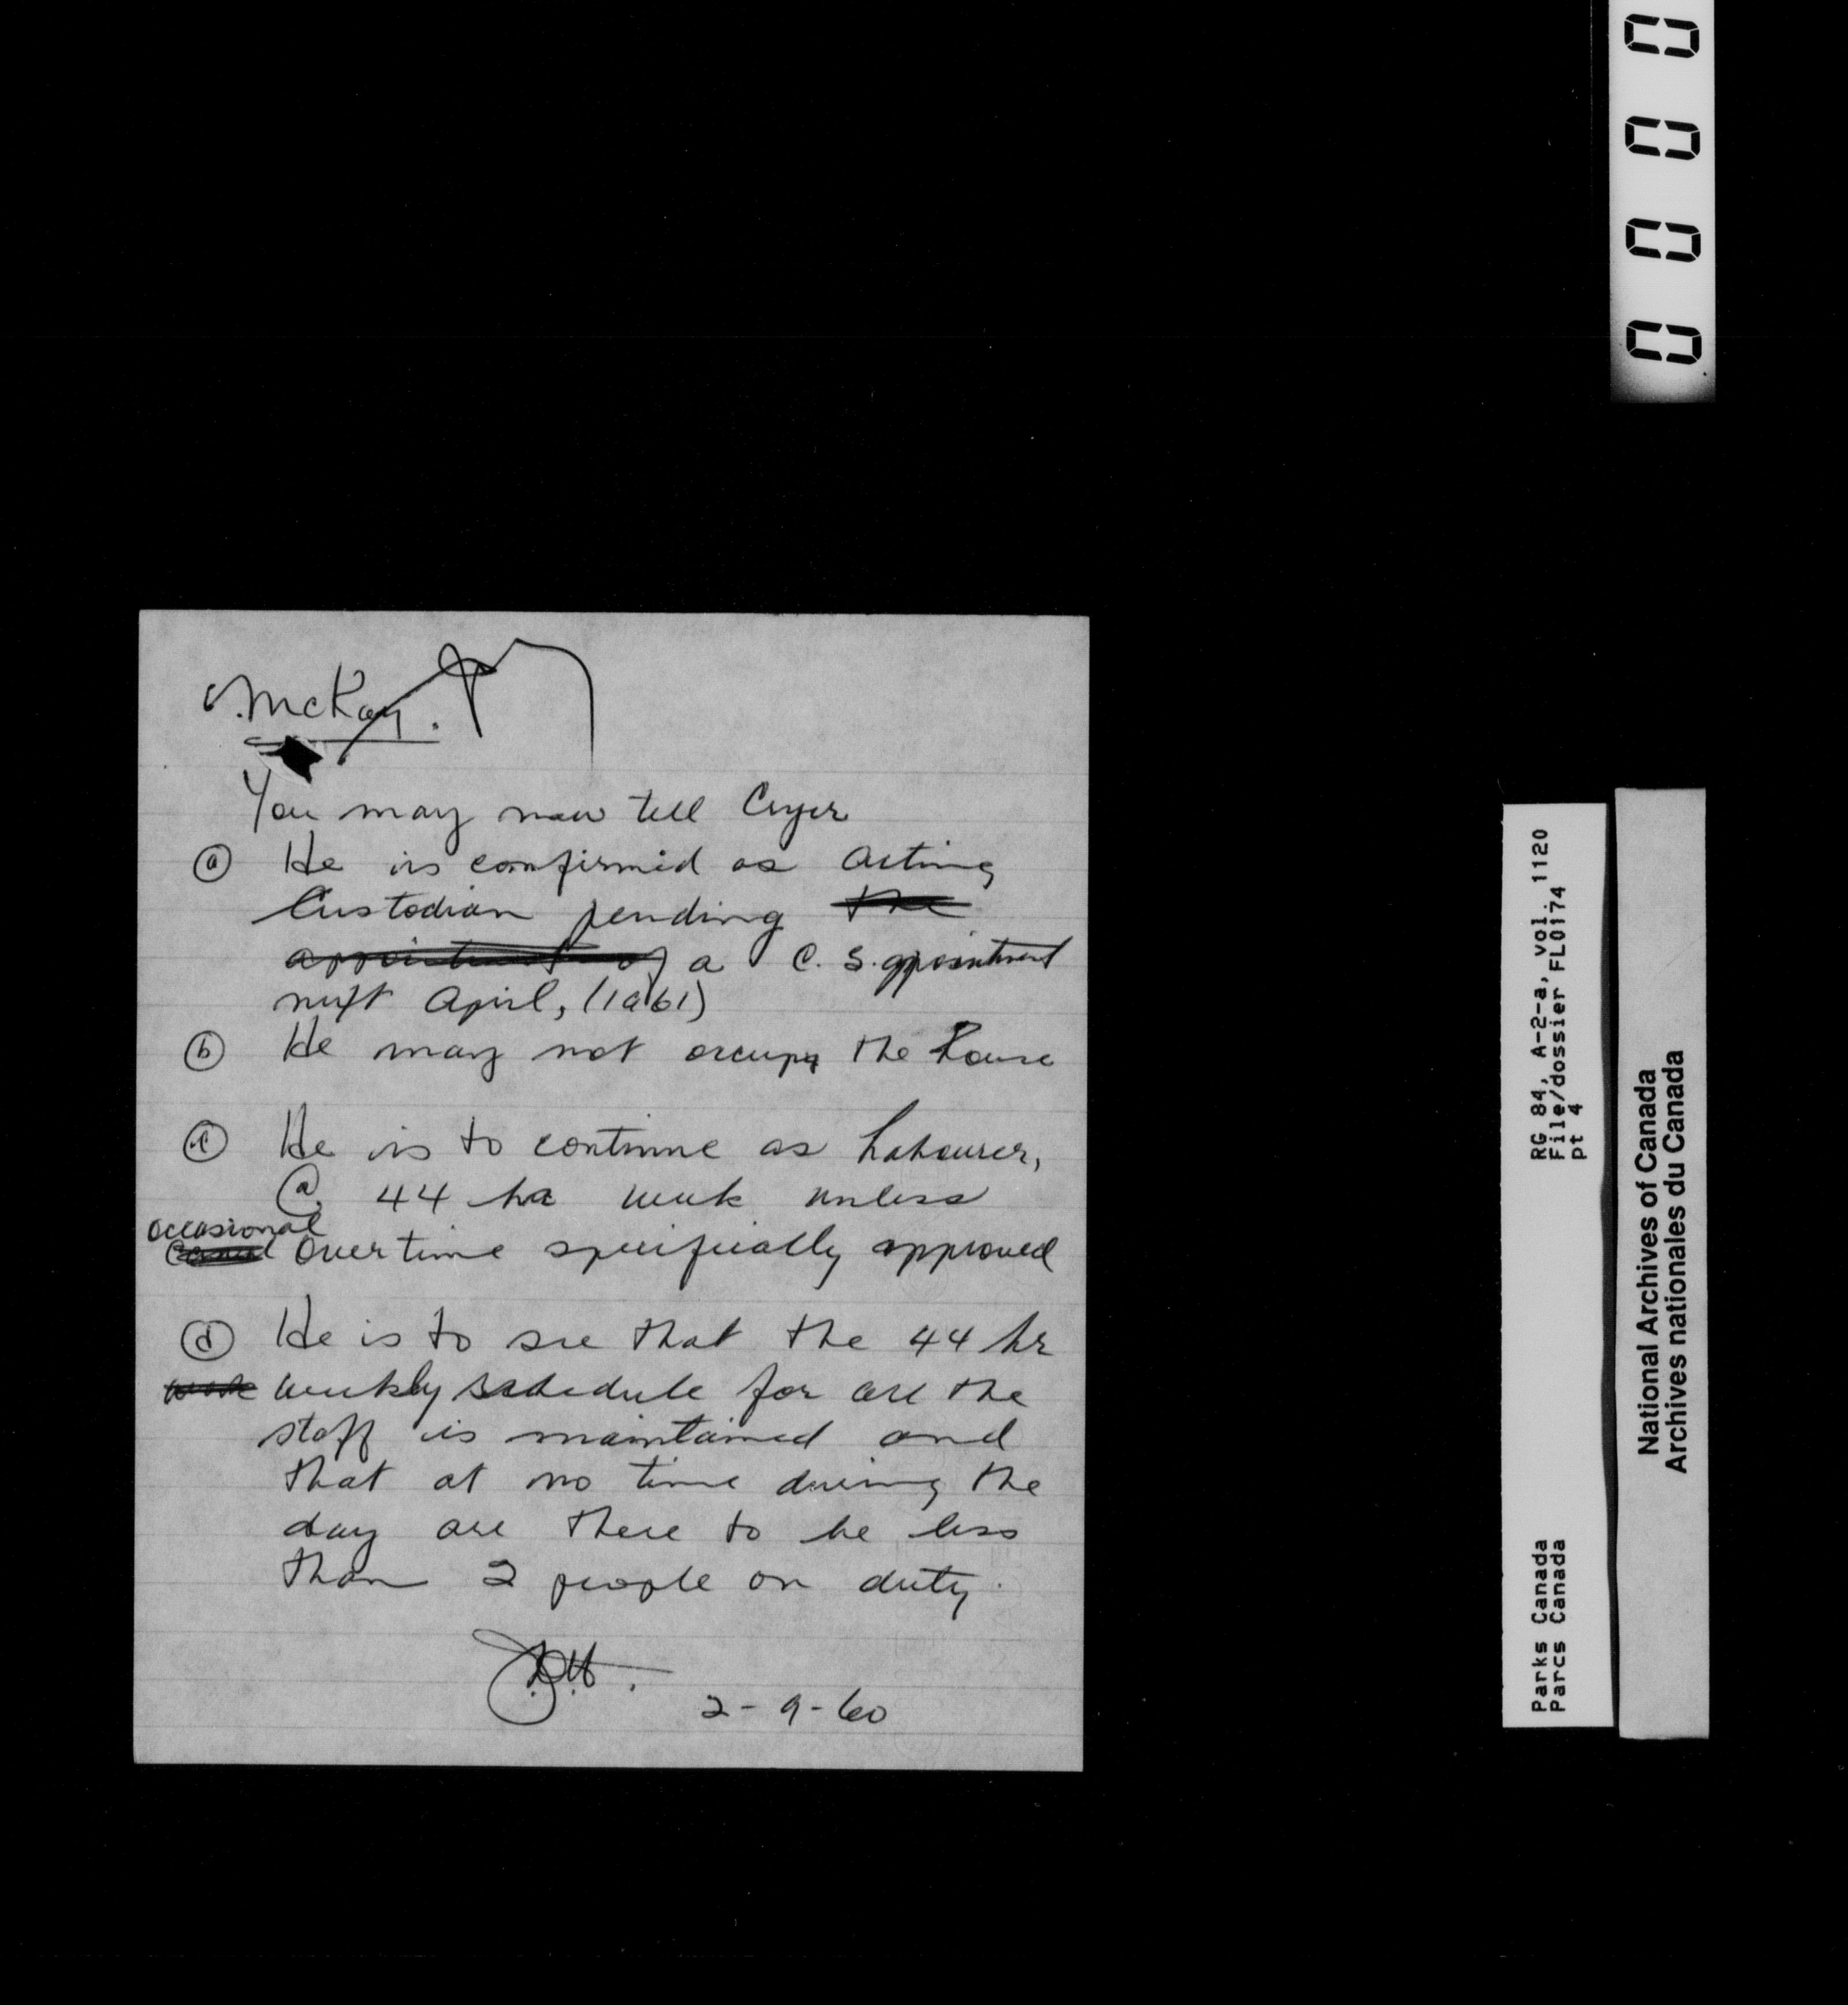 McKay.
You may now tell Cryer
(a) He is confirmed as Acting
Custodian pending the
appointment of a C. S. appointment
next April, (1961)
(b) He may not occupy the house
(c) He is to continue as Labourer,
@ 44 hr week unless
occasional
casual overtime specifically approved
(d) He is to see that the 44 hr
work weekly schedule for all the
staff is maintained and
that at no time during the
day are there to be less
than 2 people on duty.
J.D.H.
2-9-60
0000
RG 84, A-2-a, vol. 1120
File/dossier FL0174
pt 4
Parks Canada
Parcs Canada
National Archives of Canada
Archives nationales du Canada